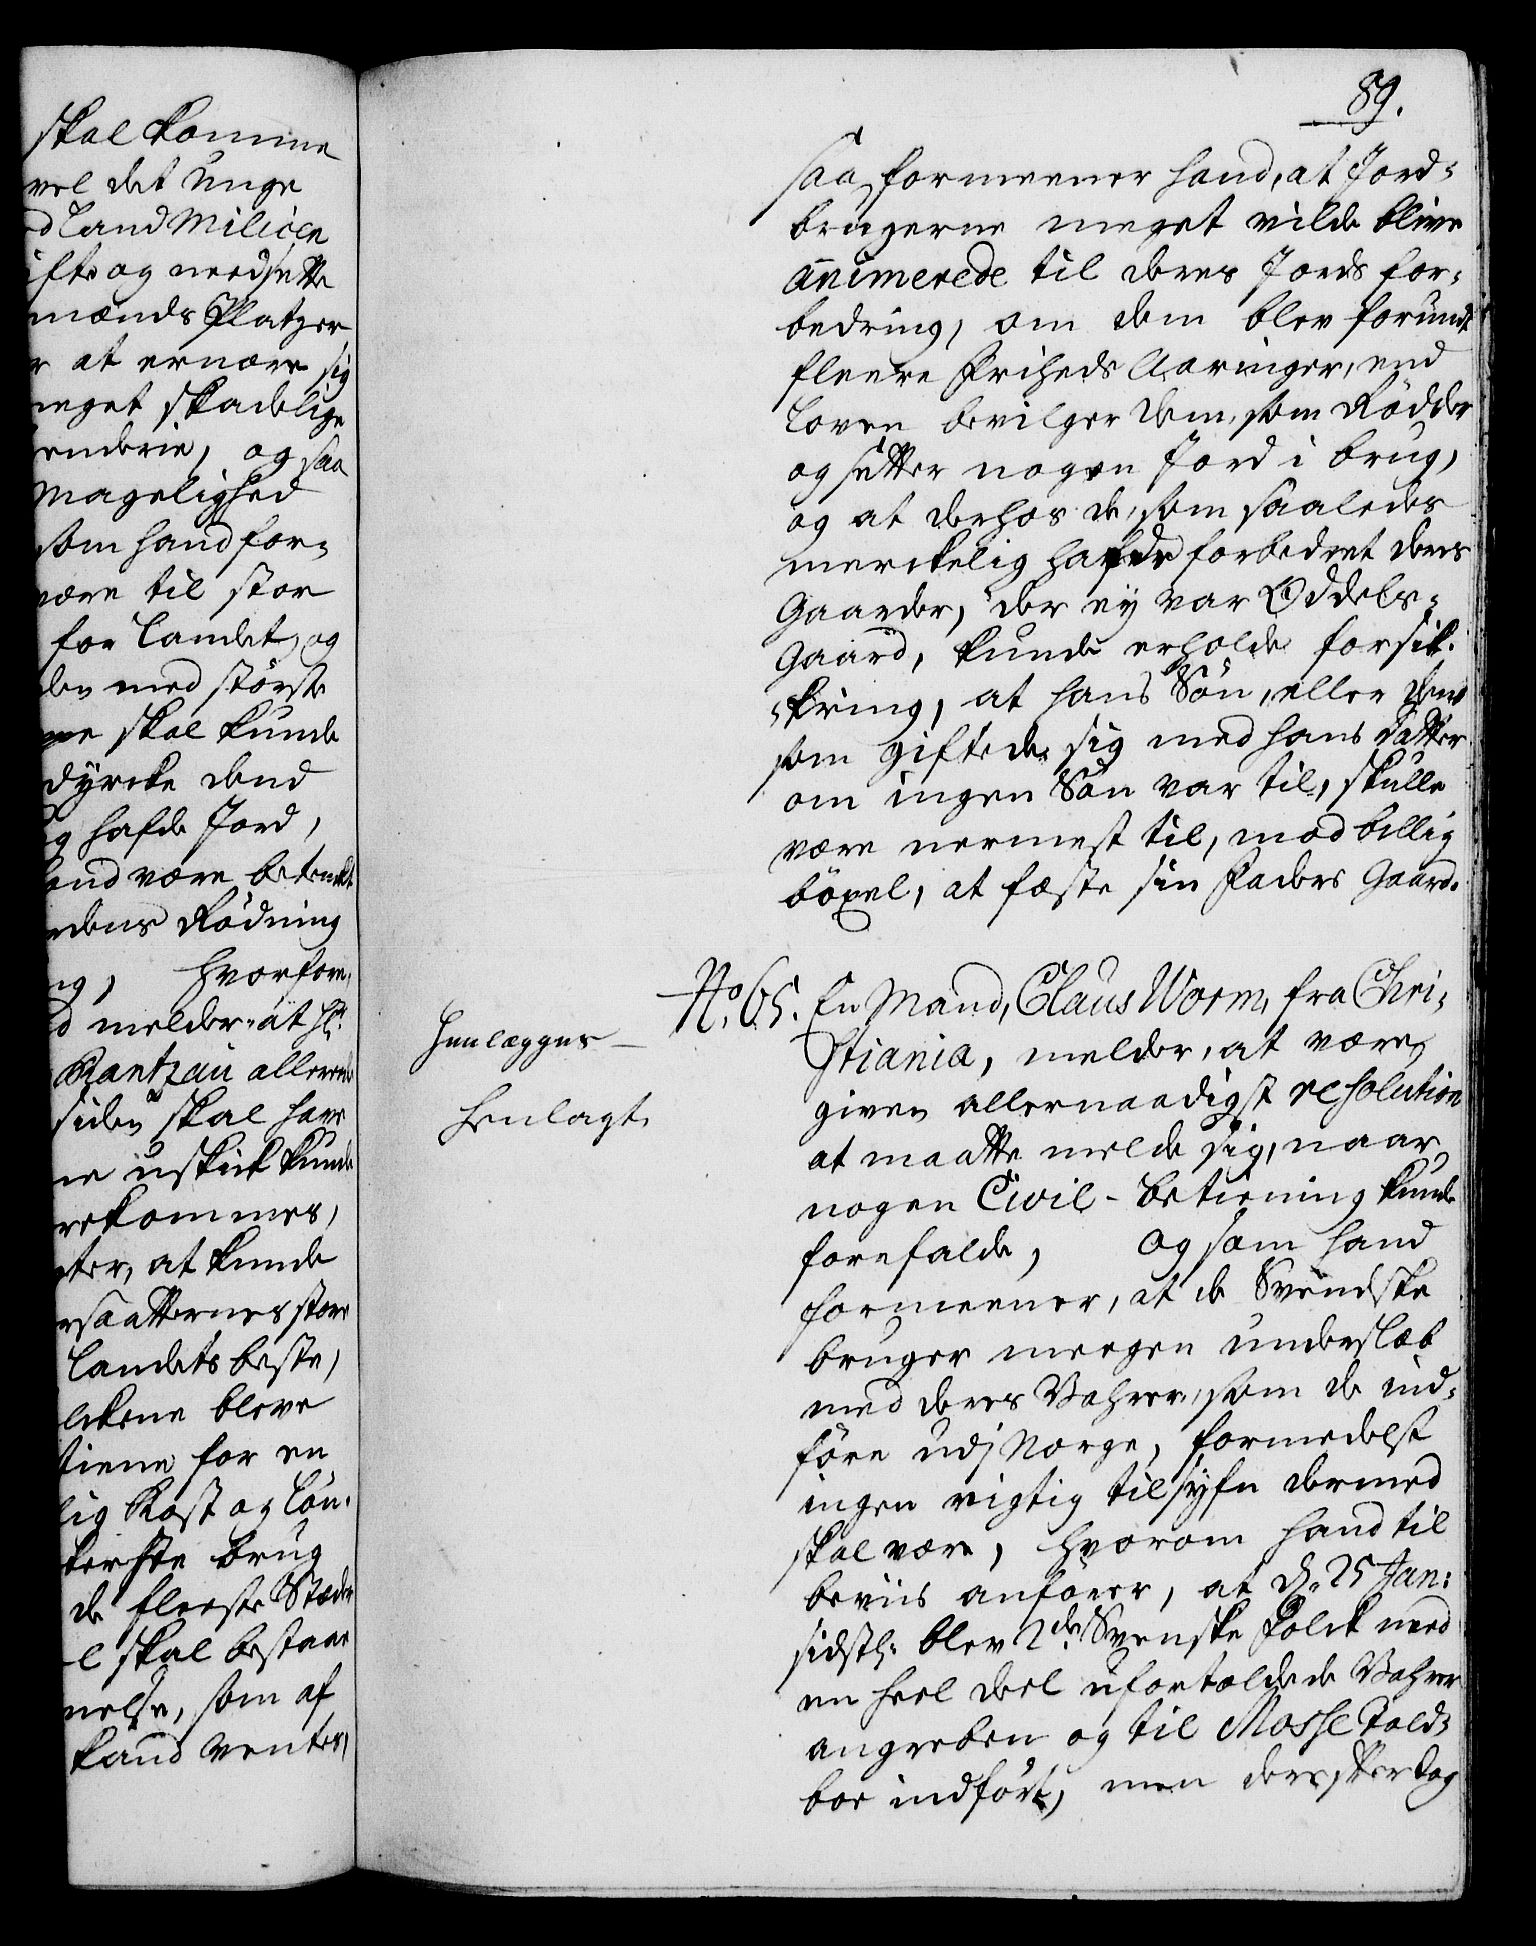 skal komme
vel det unge
d Land Milicen
ifte og nedsette
mænds Platzer
r at ernære sig
meget skadelige
enderie, og saa
Magelighed
som hand for-
være til stor
for Landet, og
den med störste
skal kunde
dyrcke dend
g hafde Jord,
and være betenkt
rdens Rödning
ng, hvorfore
d melder at Hr:
Rantzau allerede
siden skal have
ne udskik kunde
rekommes,
ter, at kunde
rsaatternes store
Landets beste,
lckene bleve
tiene for en
lig Kost og Lön.
kerste brug
de fleeste Stæder
l skal bestaae
nelse, som af
kand ventes,
89.
saa formeener hand, at Jord-
brugerne meget vilde blive
animerede til deres Jords for-
bedring, om dem blev forundt
fleere Friheds Aaringer, end
Loven bevilger dem, som Rödder
og setter nogen Jord i brug,
og at derhos de, som saaledes
merckelig hafde forbedret deres
Gaarder, der ey var Oddels-
Gaard, kunde erholde forsik-
kring, at hans Sön, eller dend
som giftede sig med hans Datter
om ingen Sön var til, skulle
være nermest til, mod billig
böxel, at fæste sin Faders Gaard.
No. 65. En Mand, Claus Worm, fra Chri-
stiania, melder, at være
given allernaadigst resolution
at maatte melde sig, naar
nogen Civil-betiening kunde
forefalde, Og som hand
formeener, at de Svendske
bruger meegen underslæb
med deres Vahrer, som de ind-
före udj Norge, formedelst
ingen rigtig tilsyfn dermed
skal være, hvorom hand til
beviis anförer, at d. 25 Jan:
sidstl: blev 2de Svenske Folck med
en heel deel ufortoldede Vahrer
angreben og til Mosse Told-
boe indfört, men dereffter dog
Henlægges
Henlagt.